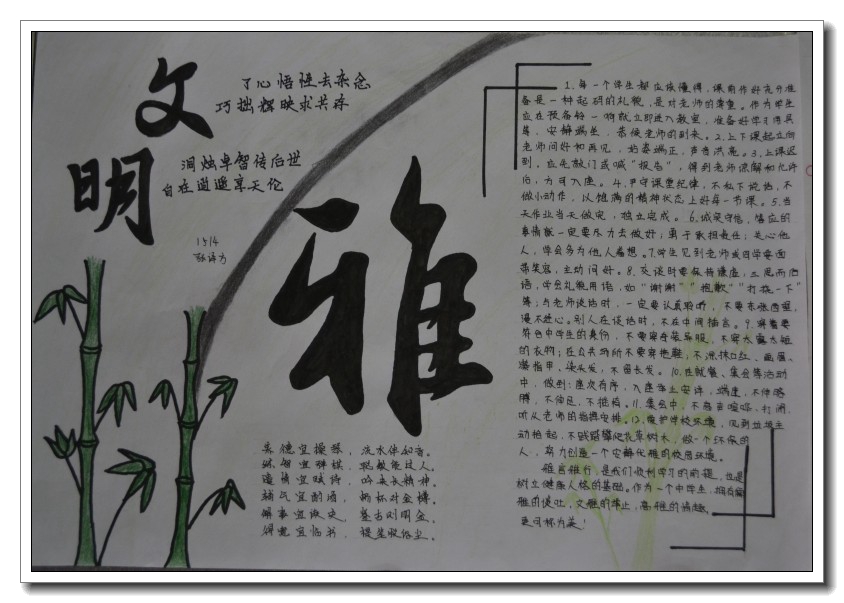 文
明
雅
了心悟性去杂念
巧拙辉映求共存
润烛卓智传后世
自在逍遥享天伦
1514
1.每一个学生都应该懂得,课前作好充分准
备是一种起码的礼貌,是对老师的尊重。作为学生
应在预备铃一响就立即进入教室,准备好学习用具
等,安静端坐,恭候老师的到来。2.上下课起立向
老师问好和再见,姿态端正,声音洪亮。3.上课迟
到,应先敲门或喊“报告”,得到老师谅解和允许
后,方可入座。4.严守课堂纪律,不私下说话,不
做小动作,以饱满的精神状态上好每一节课。5.当
天作业当天做完,独立完成。6.诚实守信,答应的
事情就一定要尽力去做好;勇于承担责任;关心他
人,学会多为他人着想。7.学生见到老师或同学要面
带笑容,主动问好。8.交谈时要保持谦虚,
语,学会礼貌用语,如“谢谢”“抱歉”“打扰一下”
等;与老师谈话时,一定要认真聆听,不要东张西望,
漫不经心。别人在谈话时,不在中间插言。9.
符合中学生的身份,不需要奇装异服,不穿太露太短
的衣物;在公共场所不要穿拖鞋,不涂抹口红、画眉、
染指甲、烫头发,不留长发。10.在就餐、集会等活动
中,做到:座次有序,入座举止安详,端庄,不伸胳
膊,不伸足,不抵椅。11.集会中,不高言喧哗、打闹,
听从老师的指挥安排。12.维护学校环境,见到垃圾主
动捡起,不践踏攀爬花草树木,做一个环保的
人,努力创造一个安静优雅的校园环境。
短言雅行,是我们顺利学习的前提,也是
树立健康人格的基础。作为一个中学生,拥有
雅的谈吐,文雅的举止,高雅的情趣,
更可称为美!
益德宜操琴,流水伴知音。
练智宜弈棋,聪敏能过人。
遣情宜赋诗,吟来表精神。
解事宜读史,鉴古则明今。